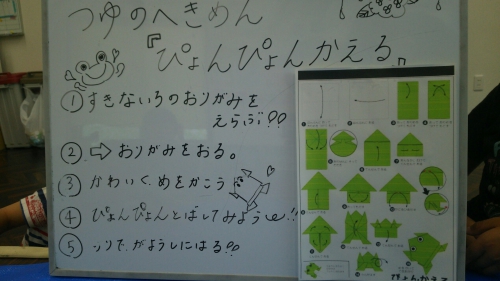 つゆのへきめん
『ぴょんぴょんかえる』
① すきないろのおりがみを
えらぶ!!
② ⇨ おりがみをおる。
③ かわいく、めをかこう
④ ぴょんぴょんとばしてみよう!!
⑤ のりで、がようしにはる!!
ぴょんかえる